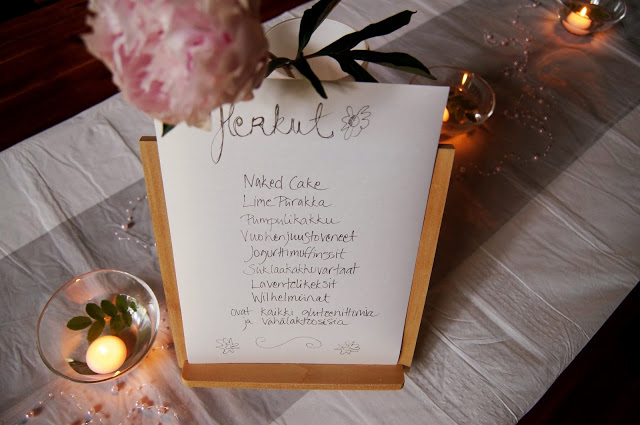 Herkut
Naked Cake
Lime Piirakka
Pumpulikakku
Vuohenjuustoveneet
Jogurttimuffinssit
Suklaakakkuvartaat
Laventelikeksit
Wilhelmiinat
ovat kaikki gluteenittomia
ja vähälaktoosisia